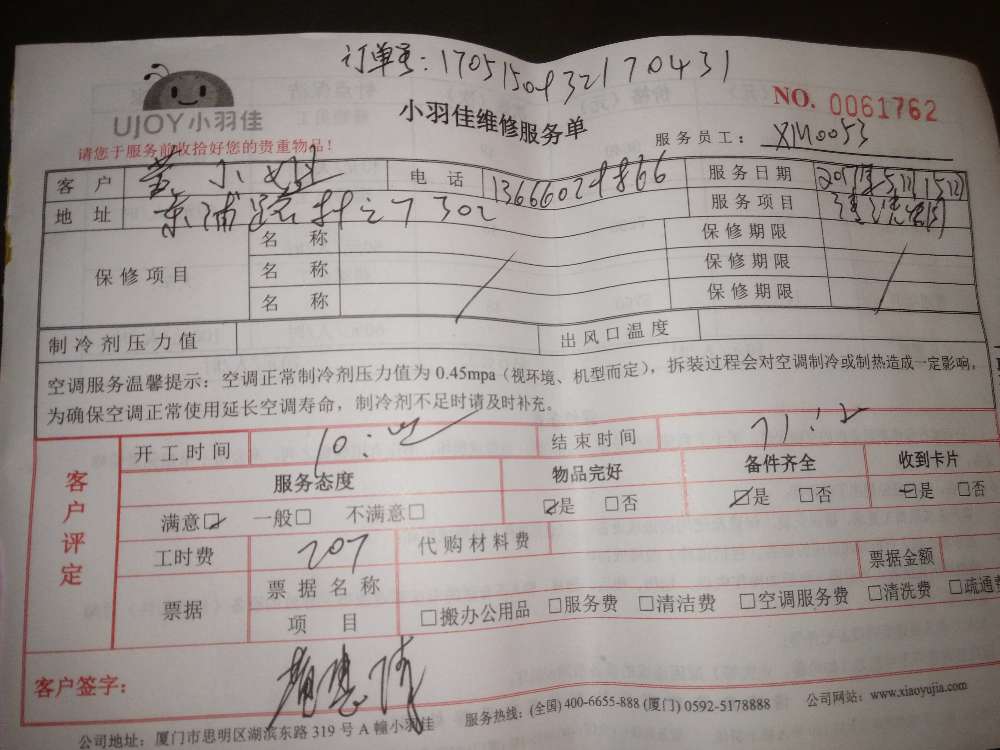 订单号：170515093217 0431
UJOY小羽佳
小羽佳维修服务单
NO. 0061762
请您于服务前收拾好您的贵重物品！
服务员工： XM0053
客 户 小姐 电 话 服务日期 2017年5月15日
地 址 东浦路 302 服务项目
保修项目 名 称 保修期限
名 称 保修期限
名 称 保修期限
制冷剂压力值 出风口温度
空调服务温馨提示：空调正常制冷剂压力值为 0.45mpa（视环境、机型而定），拆装过程会对空调制冷或制热造成一定影响，
为确保空调正常使用延长空调寿命，制冷剂不足时请及时补充。
客户评定
开工时间 10： 结束时间
服务态度 物品完好 备件齐全 收到卡片
满意☑ 一般□ 不满意□ ☑是 □否 ☑是 □否 ☑是 □否
工时费 207 代购材料费
票据 票据名称 票据金额
项 目 □搬办公用品 □服务费 □清洁费 □空调服务费 □清洗费 □疏通费
客户签字：
公司地址：厦门市思明区湖滨东路 319 号 A 幢小羽佳 服务热线：(全国) 400-6655-888 (厦门) 0592-5178888 公司网站：www.xiaoyujia.com